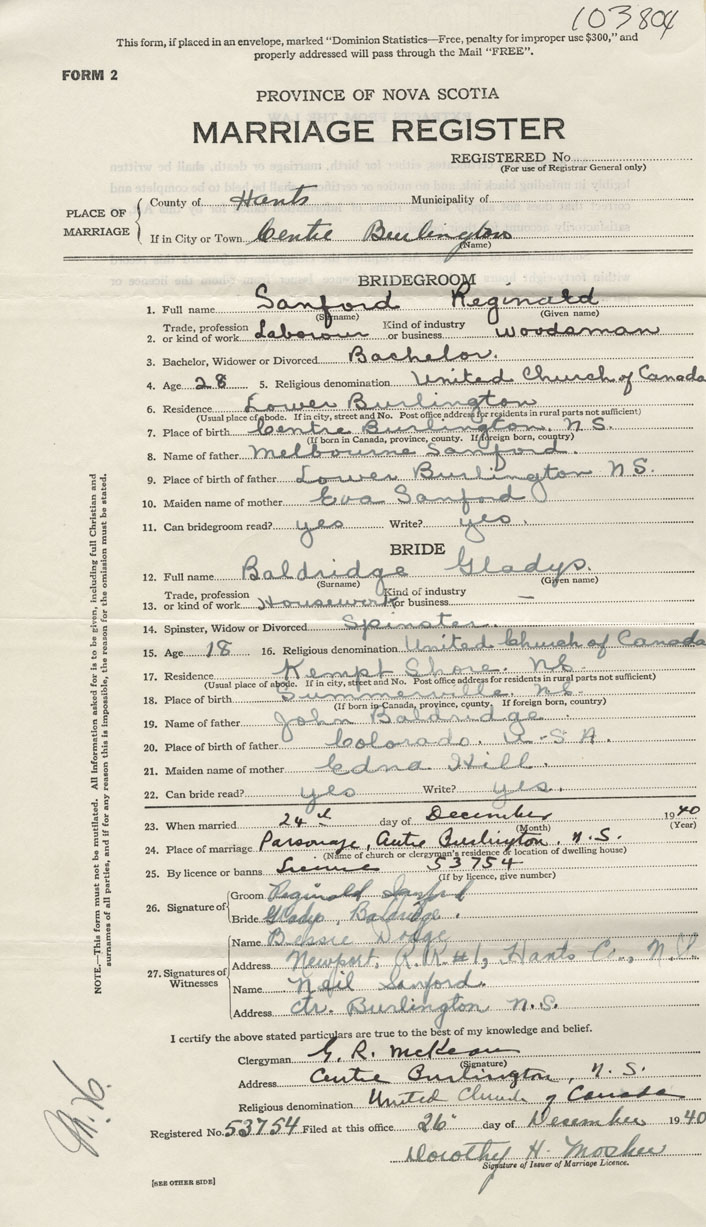 103804
This form, if placed in an envelope, marked "Dominion Statistics—Free, penalty for improper use $300," and
properly addressed will pass through the Mail "FREE".
FORM 2
PROVINCE OF NOVA SCOTIA
MARRIAGE REGISTER
REGISTERED No.
(For use of Registrar General only)
PLACE OF MARRIAGE
County of Hants Municipality of
If in City or Town Centre Burlington
(Name)
BRIDEGROOM
1. Full name Sanford Reginald
(Surname) (Given name)
2. Trade, profession or kind of work Labourer Kind of industry or business Woodsman
3. Bachelor, Widower or Divorced Bachelor.
4. Age 28 5. Religious denomination United Church of Canada
6. Residence Lower Burlington
(Usual place of abode. If in city, street and No. Post office address for residents in rural parts not sufficient)
7. Place of birth Centre Burlington, N.S.
(If born in Canada, province, county. If foreign born, country)
8. Name of father Melbourne Sanford.
9. Place of birth of father Lower Burlington N S.
10. Maiden name of mother Eva Sanford
11. Can bridegroom read? yes Write? yes.
BRIDE
12. Full name Baldridge Gladys.
(Surname) (Given name)
13. Trade, profession or kind of work Housework Kind of industry or business —
14. Spinster, Widow or Divorced Spinster.
15. Age 18 16. Religious denomination United Church of Canada
17. Residence Kempt Shore. NS.
(Usual place of abode. If in city, street and No. Post office address for residents in rural parts not sufficient)
18. Place of birth Summerville, NS.
(If born in Canada, province, county, If foreign born, country)
19. Name of father John Baldridge.
20. Place of birth of father Colorado. U-S A.
21. Maiden name of mother Edna Hill.
22. Can bride read? yes Write? yes.
23. When married 24th day of December 1940
(Month) (Year)
24. Place of marriage Parsonage, Centre Burlington, N.S.
(Name of church or clergyman's residence or location of dwelling house)
25. By licence or banns License 53754
(If by licence, give number)
26. Signature of
Groom Reginald Sanford
Bride Gladys Baldridge.
27. Signatures of Witnesses
Name Bessie Dodge
Address Newport, R.R #1, Hants Co., N.S
Name Neil Sanford.
Address Ctr. Burlington N.S.
I certify the above stated particulars are true to the best of my knowledge and belief.
Clergyman G. R. McKean
(Signature)
Address Centre Burlington, N.S.
Religious denomination United Church of Canada
Registered No. 53754 Filed at this office 26 day of December 1940
Dorothy H. Mosher
Signature of Issuer of Marriage Licence.
[SEE OTHER SIDE]
NOTE.—This form must not be mutilated. All information asked for is to be given, including full Christian and
surnames of all parties, and if for any reason this is impossible, the reason for the omission must be stated.